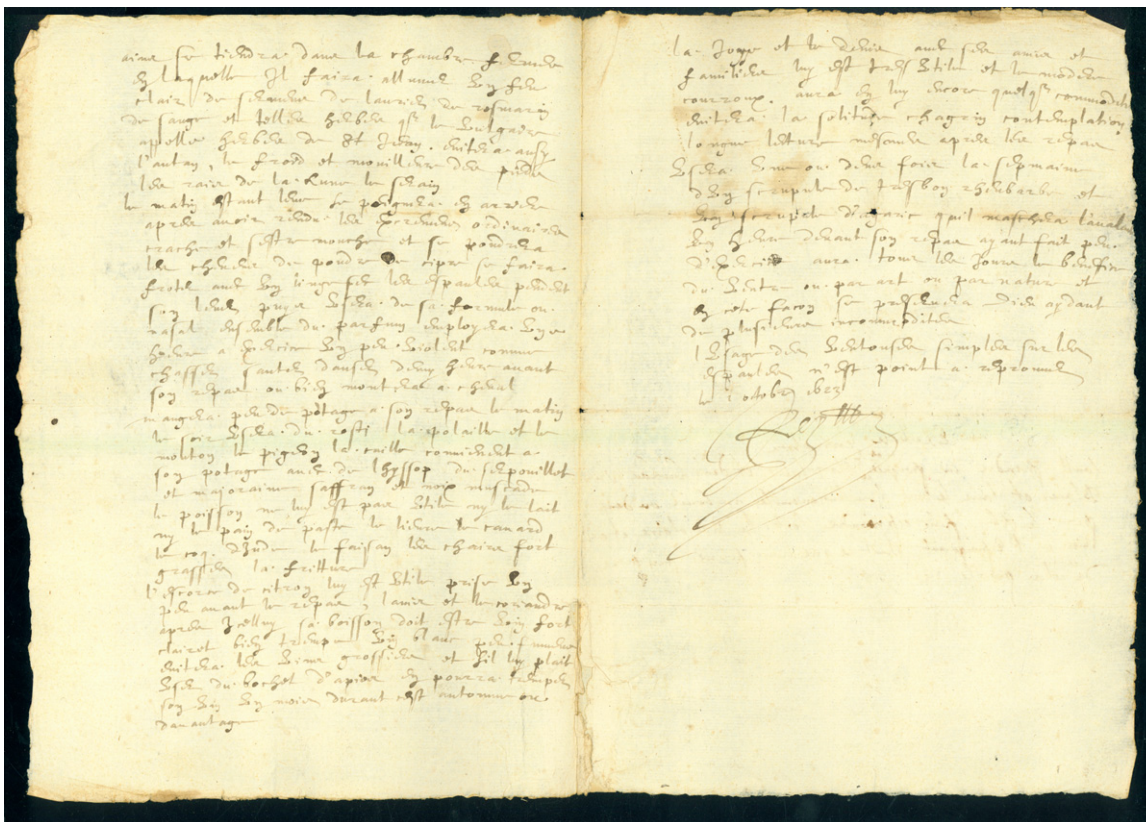 aime se tiendra dans la chambre fermee
en laquelle Il faira allumé un feu
clair de serment de laurier de rosmarin
de sauge et telles herbes que le vulgaire
appelle herbes de St Jean. evitera aussy
l'autan, le froid et mouilleure des pieds
les rais de la Lune le serain
le matin estant levé se peignera en arriere
apres avoir rendu les excremens ordinaires
craché et s'estre mouché et se poudrera
les cheveux de poudre de cipre se faira
froté avec un linge les espaules pendant
son levé puys usera de sa formule ou
nasal ensemble du parfum employera une
heure a exercice un peu violent comme
chasser sauter danser deux heure avant
son repas ou bien montera a cheval
mangera peu de potage a son repas le matin
le soir usera du rosti la polaille et le
moliton le pigeon la caille conviennent a
son potage avec de lhyssop du serpouillet
et majoraine saffran et noix muscade
le poisson ne luy est pas utile ny le lait
ny le pain de paste le lievre le canard
le coq d'Inde le faisan les chairs fort
grasses la friture
l'escorce de citron luy est utile prise un
peu avant le repas, l'anis et le coriandre
apres Icelluy sa boisson doit estre vin fort
clairet bien trempé vin blanc peu fumeux
evitera les vins grossiers et s'il luy plait
user du bochet d'apier en pourra tremper
son vin un mois durant cest automne ou
davantage
la Joye et le avec ses amis et
familiers luy est tres utile et le moderé
courroux. aura en luy encore quelque commodité
evitera la solitude chagrin contemplation
longue lecture mesmes apres les repas
usera une ou deux fois la sepmaine
d'un scrupule de tresbon rheubarbe et
un scrupule d'agaric quil maschera l'avalera
un heure devant son repas ayant fait peu
d'exercice aura tous les Jours le benefice
du ventre ou par art ou par nature et
en cete façon se preservera Dieu aydant
de plusieurs incommodites
l'Usage des ventouses simples sur les
espaules n'est point a reprouver
le octobre 1623